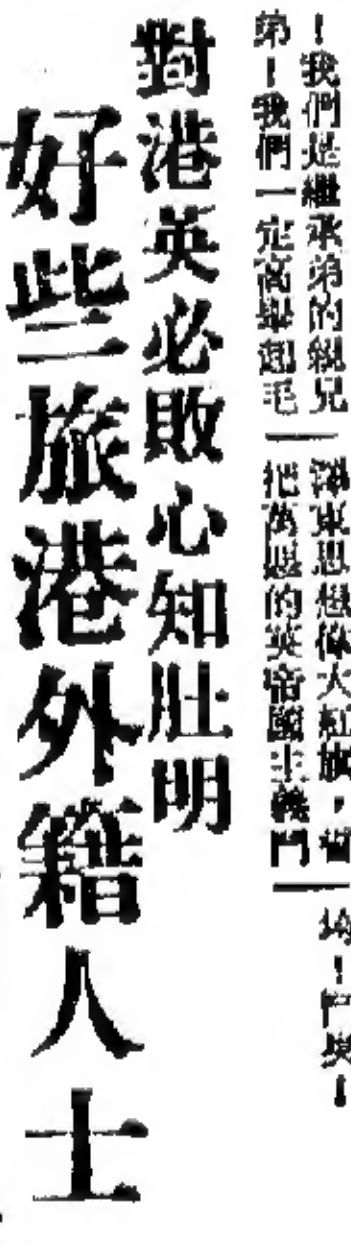 ！我們是繼承弟的親兄
弟！我們一定高舉起毛
澤東思想偉大紅旗，誓
把萬惡的英帝國主義鬥
垮！鬥臭！
對港英必敗心知肚明
好些旅港外籍人士